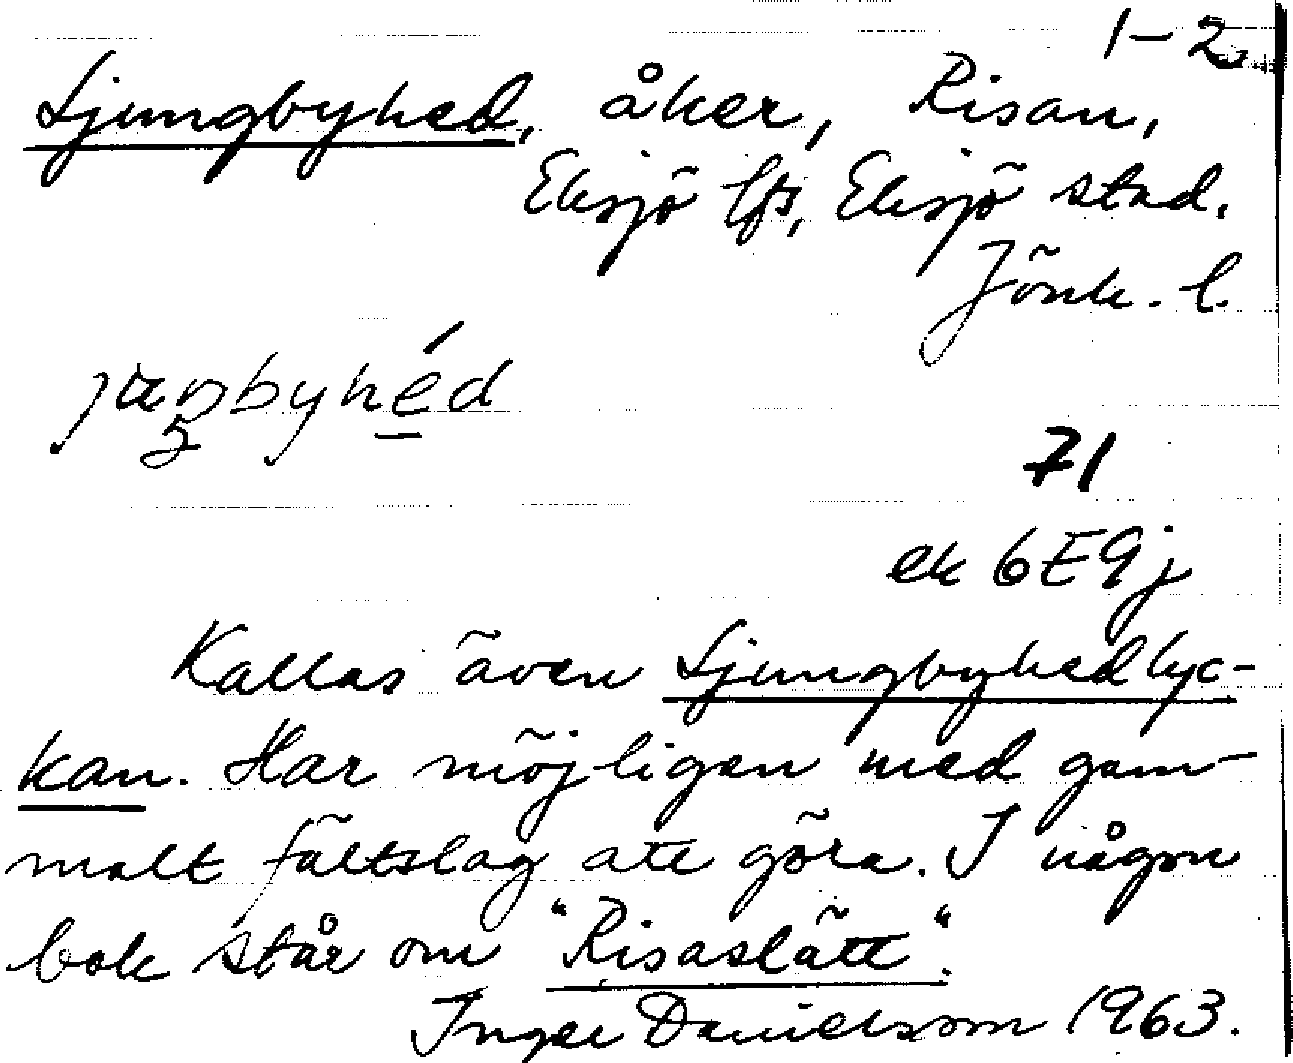 1-2
Ljungbyhed, åker, Risan,
Eksjö lfs, Eksjö stad.
Jönk. l.
71
ek 6E9j
Kallas även Ljungbyhedlyc-
kan. Har möjligen med gam-
malt fältslag att göra. I någon
bok står om "Risaslätt".
Inger Danielsson 1963.